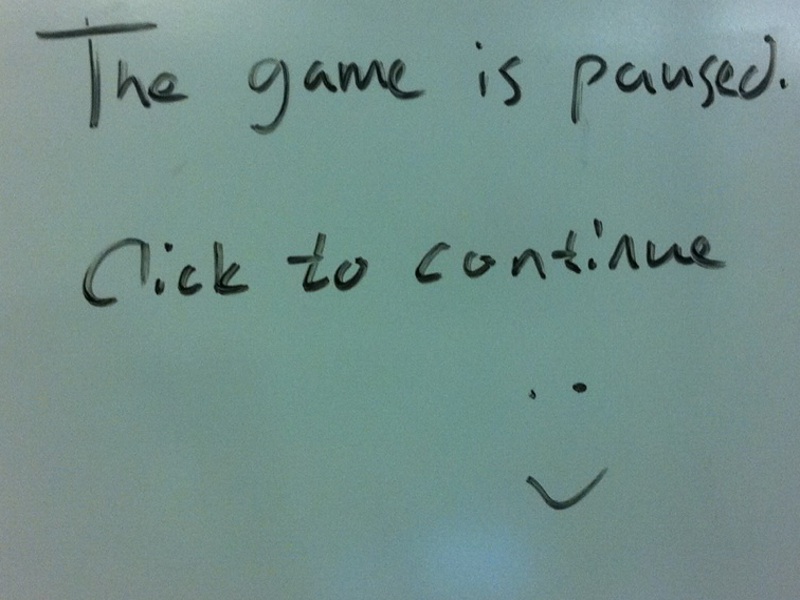 The game is paused.
Click to continue